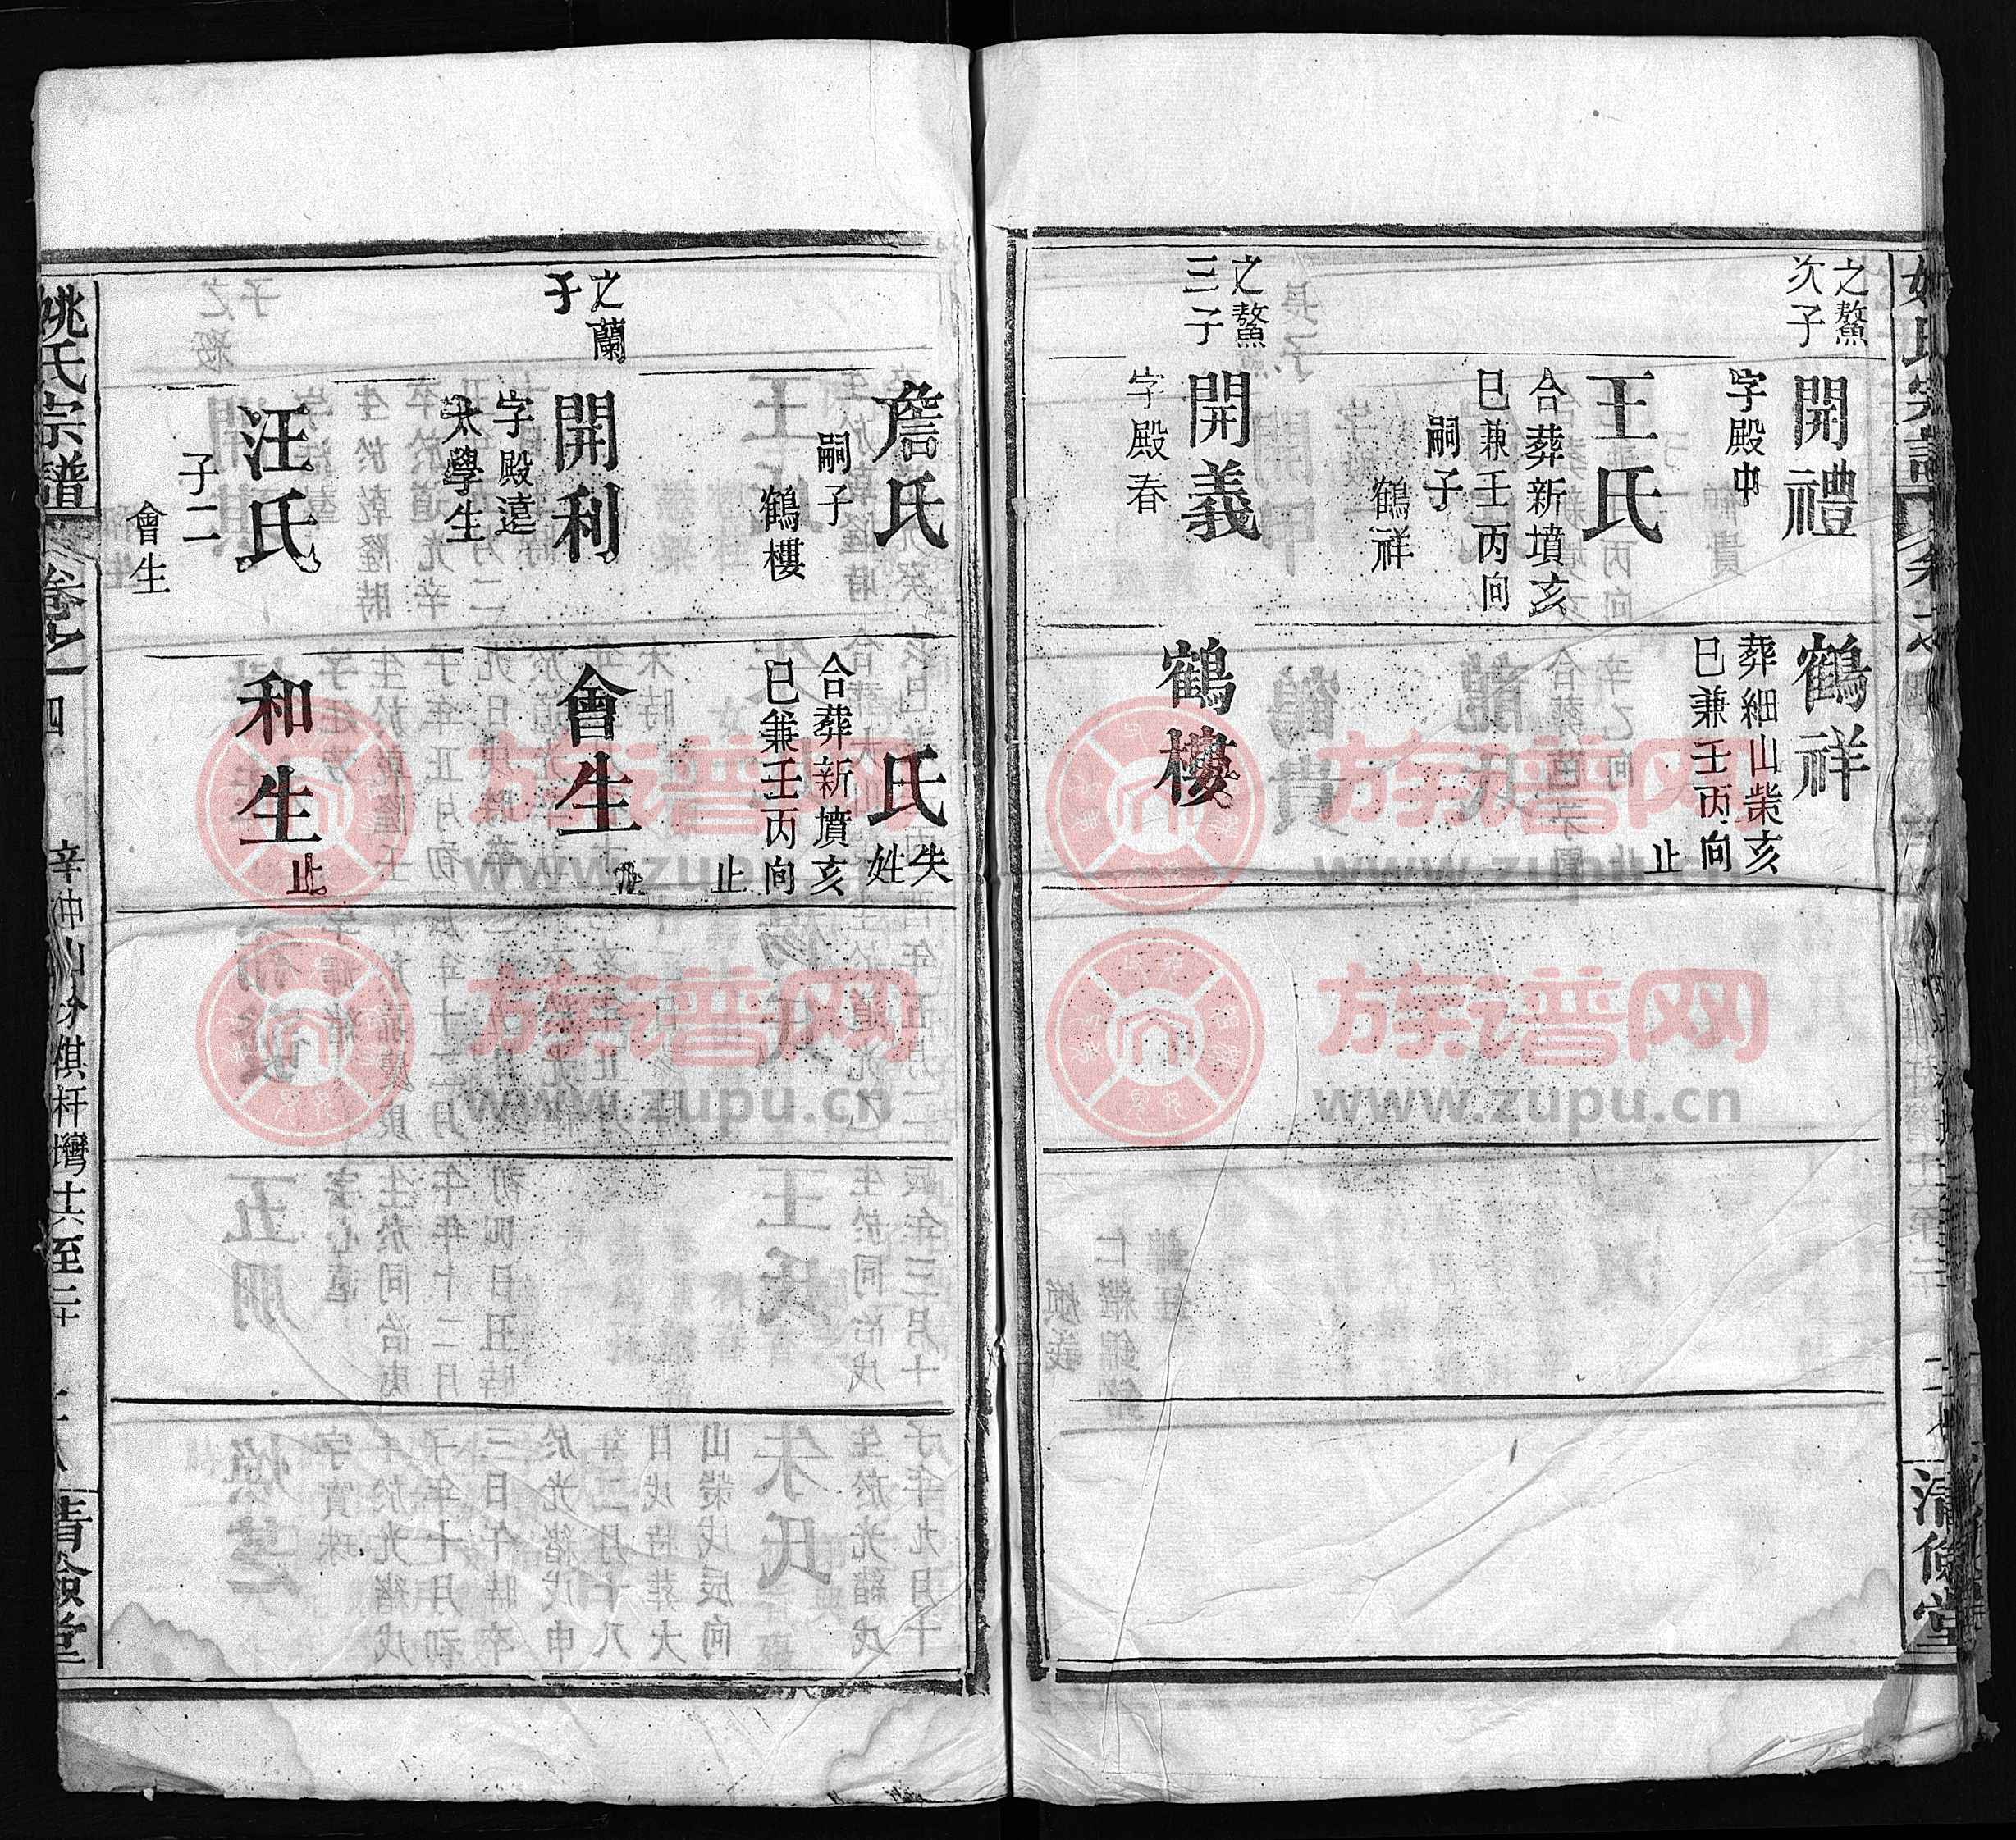 之鰲
次子
開禮
字殿中
王氏
合葬新墳亥
巳兼壬丙向
嗣子
鶴祥
之鰲
三子
開義
字殿春
鶴祥
葬細山柴亥
巳兼壬丙向
止
鶴樓
清儉堂
詹氏
嗣子
鶴樓
之蘭
子
開利
字殿遠
太學生
汪氏
子二
會生
氏
失
姓
合葬新墳亥
巳兼壬丙向
止
會生
和生
止
姚氏宗譜
卷之四
辛冲山分棋杆壪十六至二十
清儉堂
族谱网
www.zupu.cn
族谱网
www.zupu.cn
族谱网
www.zupu.cn
族谱网
www.zupu.cn